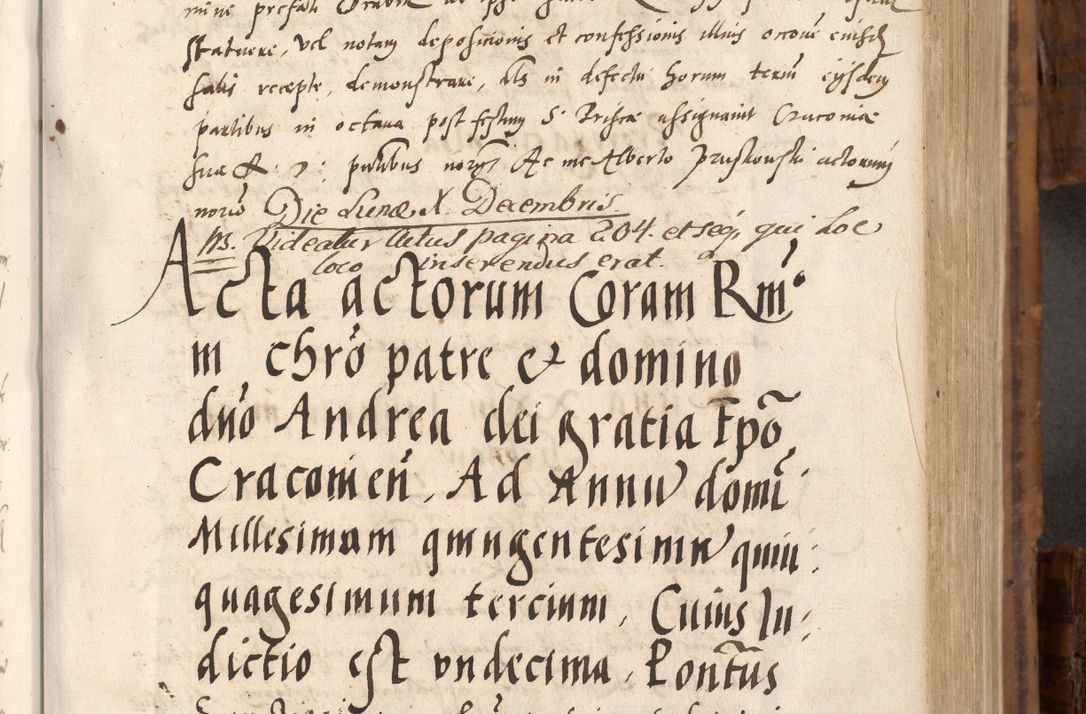 mine prefati
statuere, vel notam depositionis et confessionis illius
recepte, demonstrare, Als in defectu horum term eijsdem
partibus in octava post festum S. Prisce assignavit Cracovie
partibus Ac me Alberto Pruskowski actorum
Die Lunæ X. Decembris
NB. Videatur Actus pagina 204. et seq, qui hoc
loco inserendus erat.
Acta actorum Coram Rmo
in chro patre et domino
dno Andrea dei gratia Epo
Cracovien, Ad Annu domi
Millesimum quingentesimu quin:
quagesimum tercium, Cuius In:
dictio est undecima, Pontus